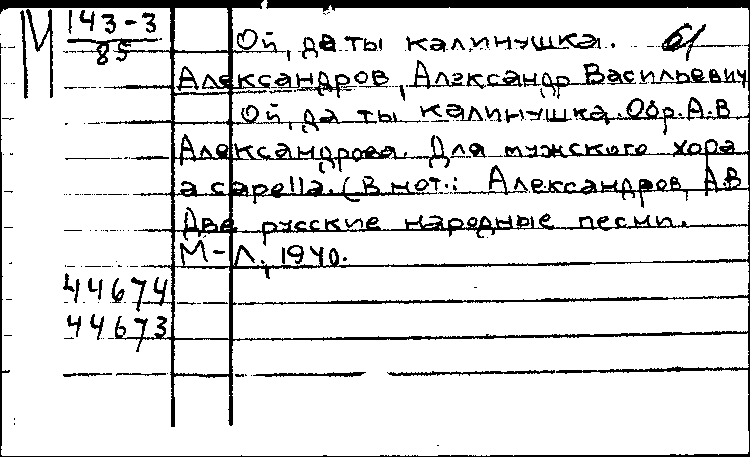 М 143-3
85
Ой, да ты калинушка. б/
Александров, Александр Васильевич
Ой, да ты калинушка. Обр. А.В
Александрова. Для мужского хора
a capella. (В нот.: Александров, А.В
Две русские народные песни.
М-Л., 1940.
44674
44673